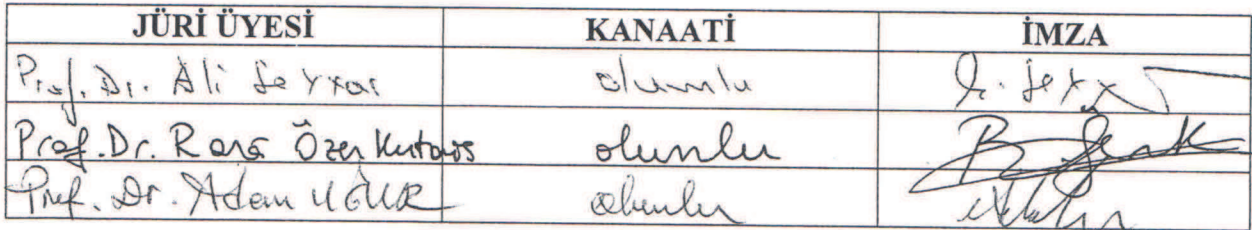 JÜRİ ÜYESİ KANAATİ İMZA
Prof. Dr. Ali Seyyar olumlu
Prof. Dr. Rana Özen Kutanis olumlu
Prof. Dr. Adem UĞUR olumlu